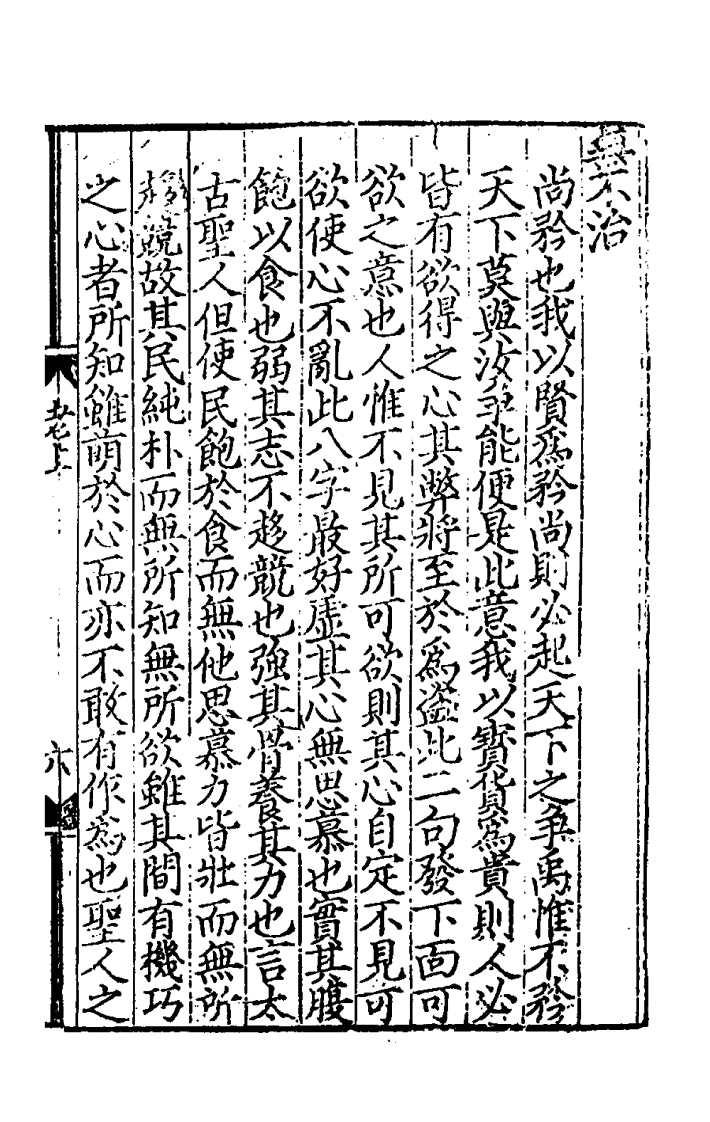 無不治
尚矜也我以賢為矜尚則必起天下之爭禹惟不矜
天下莫與汝爭能便是此意我以寶貨為貴則人必
皆有欲得之心其弊將至於為盜此二句發下面可
欲之意也人惟不見其所可欲則其心自定不見可
欲使心不亂此八字最好虛其心無思慕也實其腹
飽以食也弱其志不趍競也強其骨養其力也言太
古聖人但使民飽於食而無他思慕力皆壯而無所
趍競故其民純朴而無所知無所欲雖其間有機巧
之心者所知雖萌於心而亦不敢有作為也聖人之
六